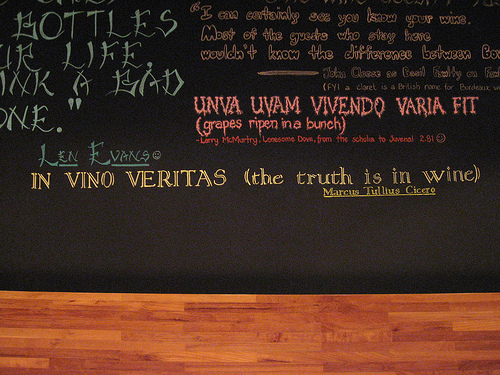 BOTTLES
LIFE,
A BAD
ONE."
Len Evans☺
"I can certainly see you know your wine.
Most of the guests who stay here
wouldn't know the difference between
John Cleese as Basil Fawlty
(FYI a claret is a British name for Bordeaux
UNVA UVAM VIVENDO VARIA FIT
(grapes ripen in a bunch)
-Larry McMurtry, Lonesome Dove, from the scholia to Juvenal 2.81 ☺
IN VINO VERITAS (the truth is in wine)
Marcus Tullius Cicero